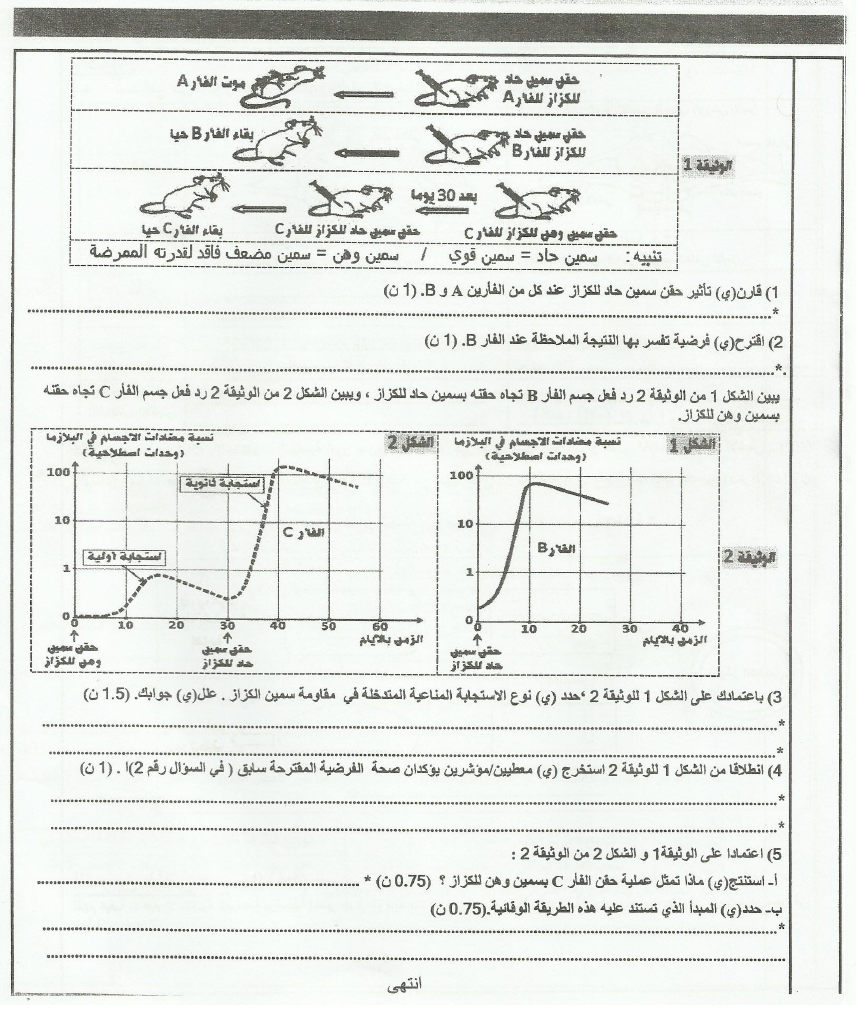 حقن سمين حاد للكزاز للفأر A
موت الفأر A
حقن سمين حاد للكزاز للفأر B
بقاء الفأر B حيا
الوثيقة 1
بعد 30 يوما
حقن سمين وهن للكزاز للفأر C
حقن سمين حاد للكزاز للفأر C
بقاء الفأر C حيا
تنبيه: سمين حاد = سمين قوي / سمين وهن = سمين مضعف فاقد لقدرته الممرضة
1) قارن(ي) تأثير حقن سمين حاد للكزاز عند كل من الفأرين A و B. (1 ن)
*
2) اقترح(ي) فرضية تفسر بها النتيجة الملاحظة عند الفار B. (1 ن)
*
يبين الشكل 1 من الوثيقة 2 رد فعل جسم الفأر B تجاه حقنه بسمين حاد للكزاز ، ويبين الشكل 2 من الوثيقة 2 رد فعل جسم الفأر C تجاه حقنه
بسمين وهن للكزاز.
الشكل 1
نسبة مضادات الاجسام في البلازما
(وحدات اصطلاحية)
100
10
1
0
الفأر B
0 10 20 30 40
الزمن بالأيام
حقن سمين
حاد للكزاز
الشكل 2
نسبة مضادات الاجسام في البلازما
(وحدات اصطلاحية)
100
استجابة ثانوية
10
الفأر C
استجابة أولية
1
0
0 10 20 30 40 50 60
الزمن بالأيام
حقن سمين
وهن للكزاز
حقن سمين
حاد للكزاز
الوثيقة 2
3) باعتمادك على الشكل 1 للوثيقة 2 ،حدد (ي) نوع الاستجابة المناعية المتدخلة في مقاومة سمين الكزاز . علل(ي) جوابك. (1.5 ن)
*
*
4) انطلاقا من الشكل 1 للوثيقة 2 استخرج (ي) معطيين/مؤشرين يؤكدان صحة الفرضية المقترحة سابق ( في السؤال رقم 2)ا . (1 ن)
*
*
5) اعتمادا على الوثيقة1 و الشكل 2 من الوثيقة 2 :
أ- استنتج(ي) ماذا تمثل عملية حقن الفأر C بسمين وهن للكزاز ؟ (0.75 ن) *
ب- حدد(ي) المبدأ الذي تستند عليه هذه الطريقة الوقائية.(0.75 ن)
*
انتهى